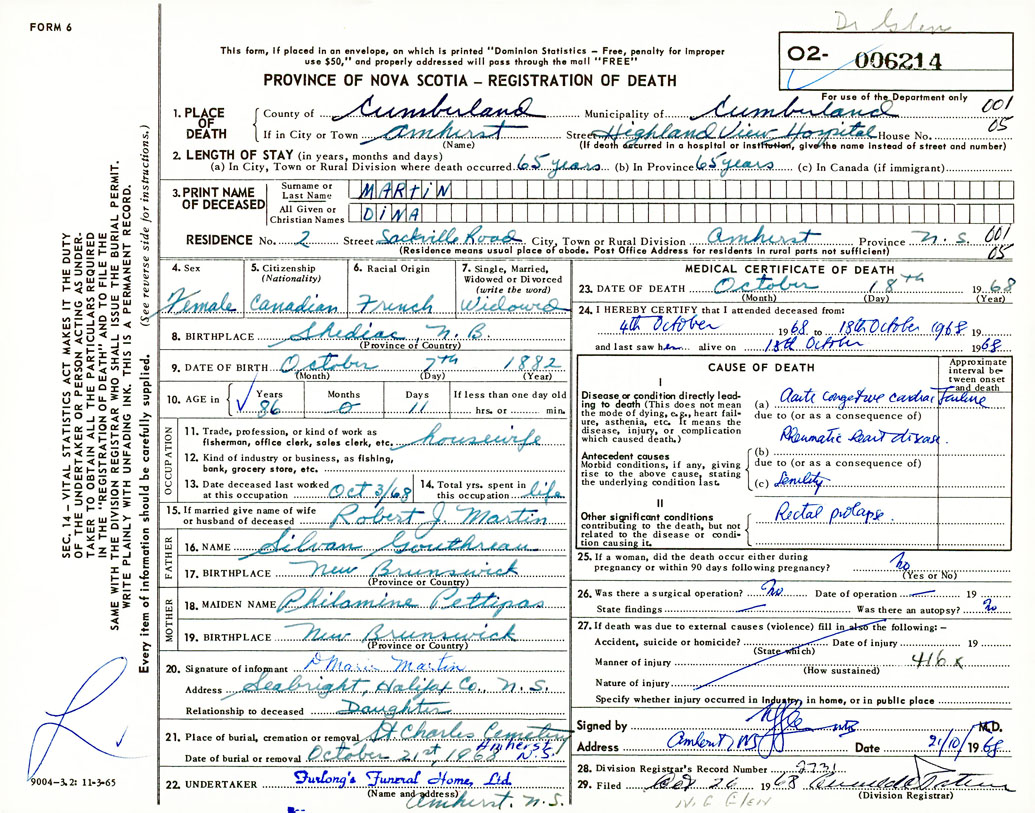 FORM 6
Dr Glen
This form, if placed in an envelope, on which is printed "Dominion Statistics – Free, penalty for improper
use $50," and properly addressed will pass through the mail "FREE"
PROVINCE OF NOVA SCOTIA – REGISTRATION OF DEATH
O2- 006214
For use of the Department only
001
05
1. PLACE OF DEATH County of Cumberland Municipality of Cumberland
If in City or Town Amhirst Street Highland View Hospital House No.
(Name) (If death occurred in a hospital or institution, give the name instead of street and number)
2. LENGTH OF STAY (in years, months and days)
(a) In City, Town or Rural Division where death occurred 65 years (b) In Province 65 years (c) In Canada (if immigrant)
3. PRINT NAME OF DECEASED
Surname or Last Name MARTiN
All Given or Christian Names DiNA
RESIDENCE No. 2 Street Sackville Road City, Town or Rural Division Amhirst Province N. S. 001
05
(Residence means usual place of abode. Post Office Address for residents in rural parts not sufficient)
4. Sex Female
5. Citizenship (Nationality) Canadian
6. Racial Origin French
7. Single, Married, Widowed or Divorced (write the word) Widowed
8. BIRTHPLACE Shediac, N. B.
(Province or Country)
9. DATE OF BIRTH October 7th 1882
(Month) (Day) (Year)
10. AGE in Years 86 Months 0 Days 11 If less than one day old hrs. or min.
OCCUPATION
11. Trade, profession, or kind of work as fisherman, office clerk, sales clerk, etc. housewife
12. Kind of industry or business, as fishing, bank, grocery store, etc.
13. Date deceased last worked at this occupation Oct 3/68
14. Total yrs. spent in this occupation life
15. If married give name of wife or husband of deceased Robert J. Martin
FATHER
16. NAME Silvan Gouthreau
17. BIRTHPLACE New Brunswick
(Province or Country)
MOTHER
18. MAIDEN NAME Philamine Pettipas
19. BIRTHPLACE New Brunswick
(Province or Country)
20. Signature of informant D Marie Martin
Address Seabright, Halifax Co., N. S.
Relationship to deceased Daughter
21. Place of burial, cremation or removal St Charles Cemetery
Amherst N.S.
Date of burial or removal October 21st, 1968
22. UNDERTAKER Furlong's Funeral Home, Ltd.
(Name and address) Amherst, N. S.
MEDICAL CERTIFICATE OF DEATH
23. DATE OF DEATH October 18th 1968
(Month) (Day) (Year)
24. I HEREBY CERTIFY that I attended deceased from:
4th October 1968 to 18th October 1968 19
and last saw her alive on 18th October 1968
CAUSE OF DEATH
Approximate interval between onset and death
I
Disease or condition directly leading to death (This does not mean the mode of dying, e.g., heart failure, asthenia, etc. It means the disease, injury, or complication which caused death.)
(a) Acute congestive cardiac Failure
due to (or as a consequence of)
Rheumatic heart disease.
Antecedent causes
Morbid conditions, if any, giving rise to the above cause, stating the underlying condition last.
(b)
due to (or as a consequence of)
(c) Senility
II
Other significant conditions contributing to the death, but not related to the disease or condition causing it.
Rectal prolapse.
25. If a woman, did the death occur either during
pregnancy or within 90 days following pregnancy? No
(Yes or No)
26. Was there a surgical operation? No. Date of operation — 19
State findings — Was there an autopsy? No
27. If death was due to external causes (violence) fill in also the following: –
Accident, suicide or homicide? Date of injury 19
(State which)
Manner of injury 416 x
(How sustained)
Nature of injury
Specify whether injury occurred in industry, in home, or in public place
Signed by M.D.
Address Amherst NS Date 21/10/1968
28. Division Registrar's Record Number 2231
29. Filed Oct 26 1968
(Division Registrar)
SEC. 14 – VITAL STATISTICS ACT MAKES IT THE DUTY
OF THE UNDERTAKER OR PERSON ACTING AS UNDER-
TAKER TO OBTAIN ALL THE PARTICULARS REQUIRED
IN THE "REGISTRATION OF DEATH" AND TO FILE THE
SAME WITH THE DIVISION REGISTRAR WHO SHALL ISSUE THE BURIAL PERMIT.
WRITE PLAINLY WITH UNFADING INK. THIS IS A PERMANENT RECORD.
Every item of information should be carefully supplied. (See reverse side for instructions.)
9004-3.2: 11-3-65